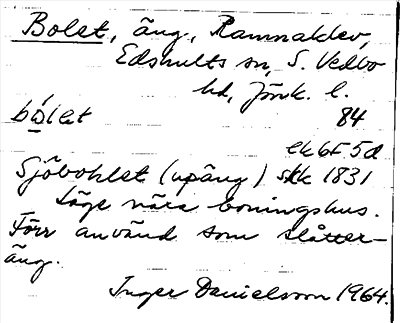 Bolet, äng, Ramnaklev,
Edshults sn, S. Vedbo
hd, Jönk. l.
bo̱let 84
ek 6F 5d
Sjöbohlet (upäng) stk 1831
Läge nära boningshus.
Förr använd som slåtter-
äng.
Inger Danielsson 1964.